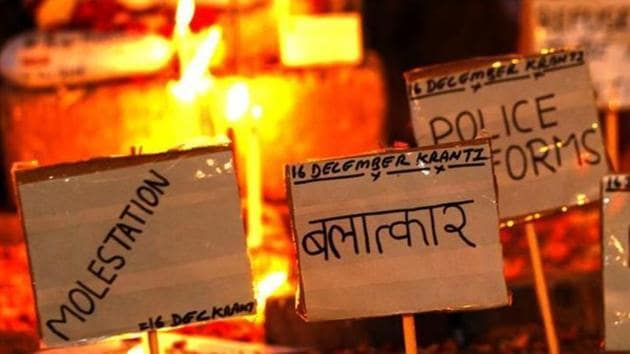 MOLESTATION
16 DEC KRANTI
16 DECEMBER KRANTI
बलात्कार
16 DECEMBER KRANTI
POLICE